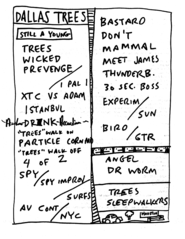 DALLAS TREES
STILL A YOUNG
TREES
WICKED
PREVENGE
/1 PAL 1
XTC VS ADAM
ISTANBUL
DRINK
"TREES" WALK ON
PARTICLE
"TREES" WALK OFF
4 OF 2
SPY/
SPY IMPROV
/SURFS
AV CONT/
NYC
BASTARD
DON'T
MAMMAL
MEET JAMES
THUNDERB.
30 SEC. BOSS
EXPERIM/
SUN
BIRD/
GTR
ANGEL
DR WORM
TREES
SLEEPWALKERS